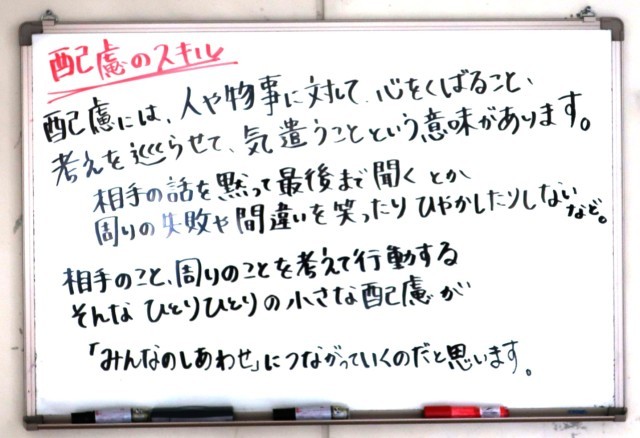 配慮のスキル
配慮には、人や物事に対して、心をくばること、
考えを巡らせて、気遣うことという意味があります。
相手の話を黙って最後まで聞くとか
周りの失敗や間違いを笑ったりひやかしたりしないなど。
相手のこと、周りのことを考えて行動する
そんなひとりひとりの小さな配慮が
「みんなのしあわせ」につながっていくのだと思います。